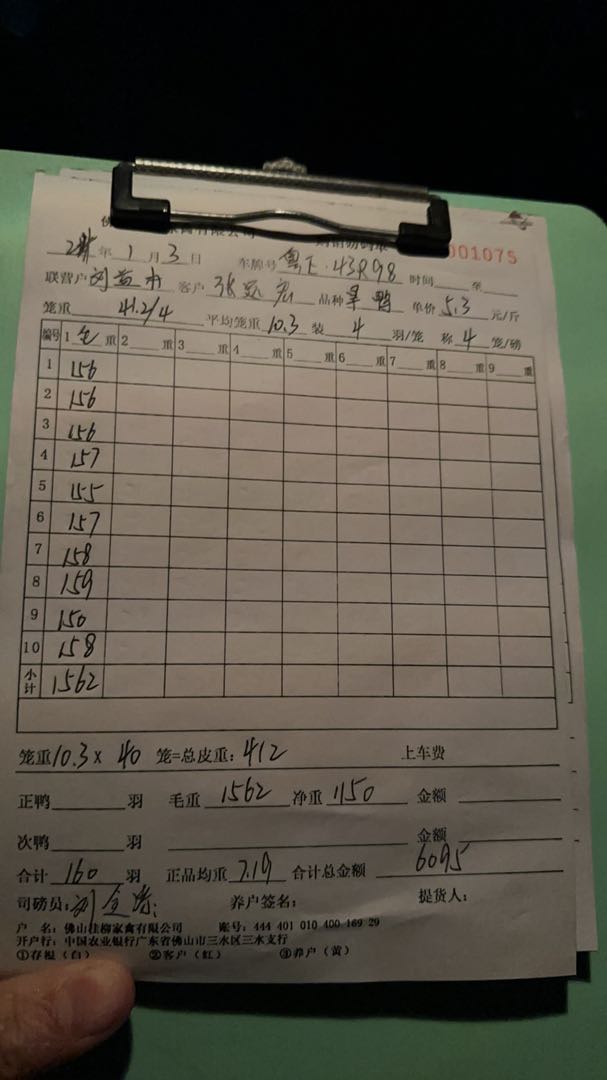 禽有限公司
001075
年 1 月 3 日 车牌号 粤E·43R98 时间 至
联营户 客户 张 品种 鸭 单价 5.3 元/斤
笼重 41.2/4 平均笼重 10.3 装 4 羽/笼 称 4 笼/磅
编号 1 重 2 重 3 重 4 重 5 重 6 重 7 重 8 重 9 重
1 156
2 156
3 156
4 157
5 155
6 157
7 158
8 159
9 150
10 158
小计 1562
笼重 10.3 × 40 笼=总皮重: 412 上车费
正鸭 羽 毛重 1562 净重 1150 金额
次鸭 羽 金额
合计 160 羽 正品均重 7.19 合计总金额 6095
司磅员: 刘 养户签名: 提货人:
户 名: 佛山桂柳家禽有限公司 账号: 444 401 010 400 169 29
开户行: 中国农业银行广东省佛山市三水区三水支行
①存根（白） ②客户（红） ③养户（黄）